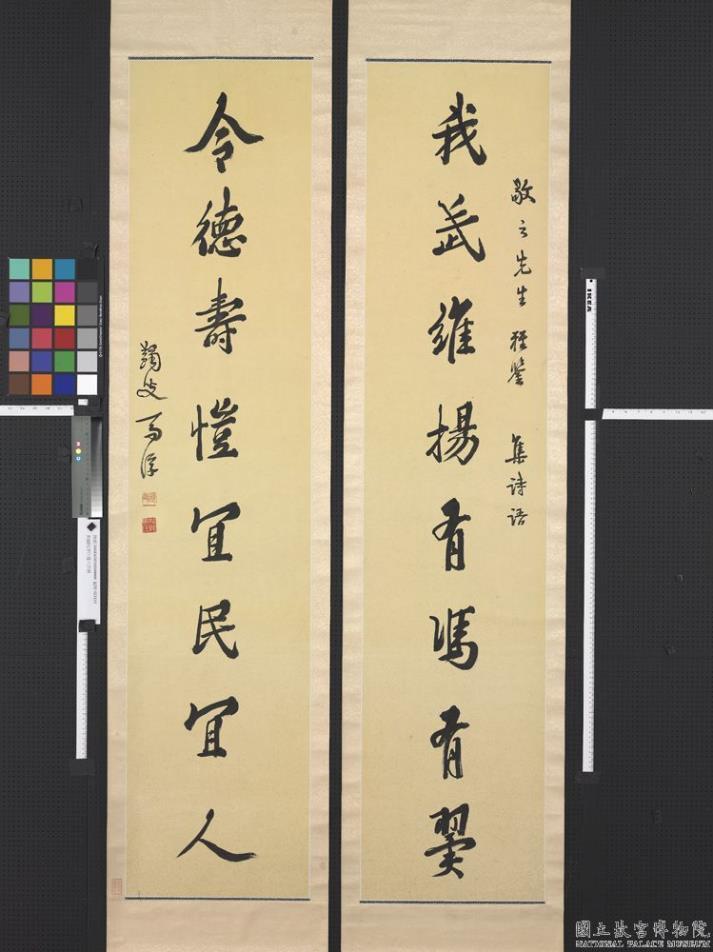 我武維揚有馮有翼
敬之先生雅鑒 集詩語
令德壽愷宜民宜人
鞠叟
國立故宮博物院
NATIONAL PALACE MUSEUM